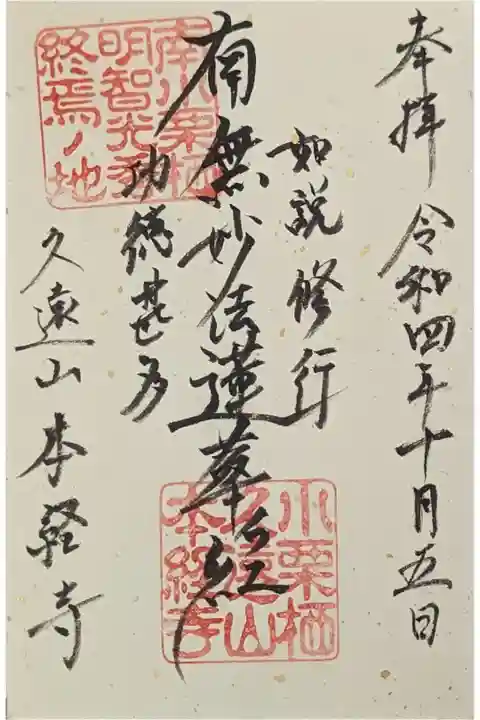 奉拝 令和四年十月五日
如説修行
南無妙法蓮華経
功徳甚多
久遠山本経寺
南小栗栖
明智光秀
終焉ノ地
小栗栖
久遠山
本経寺